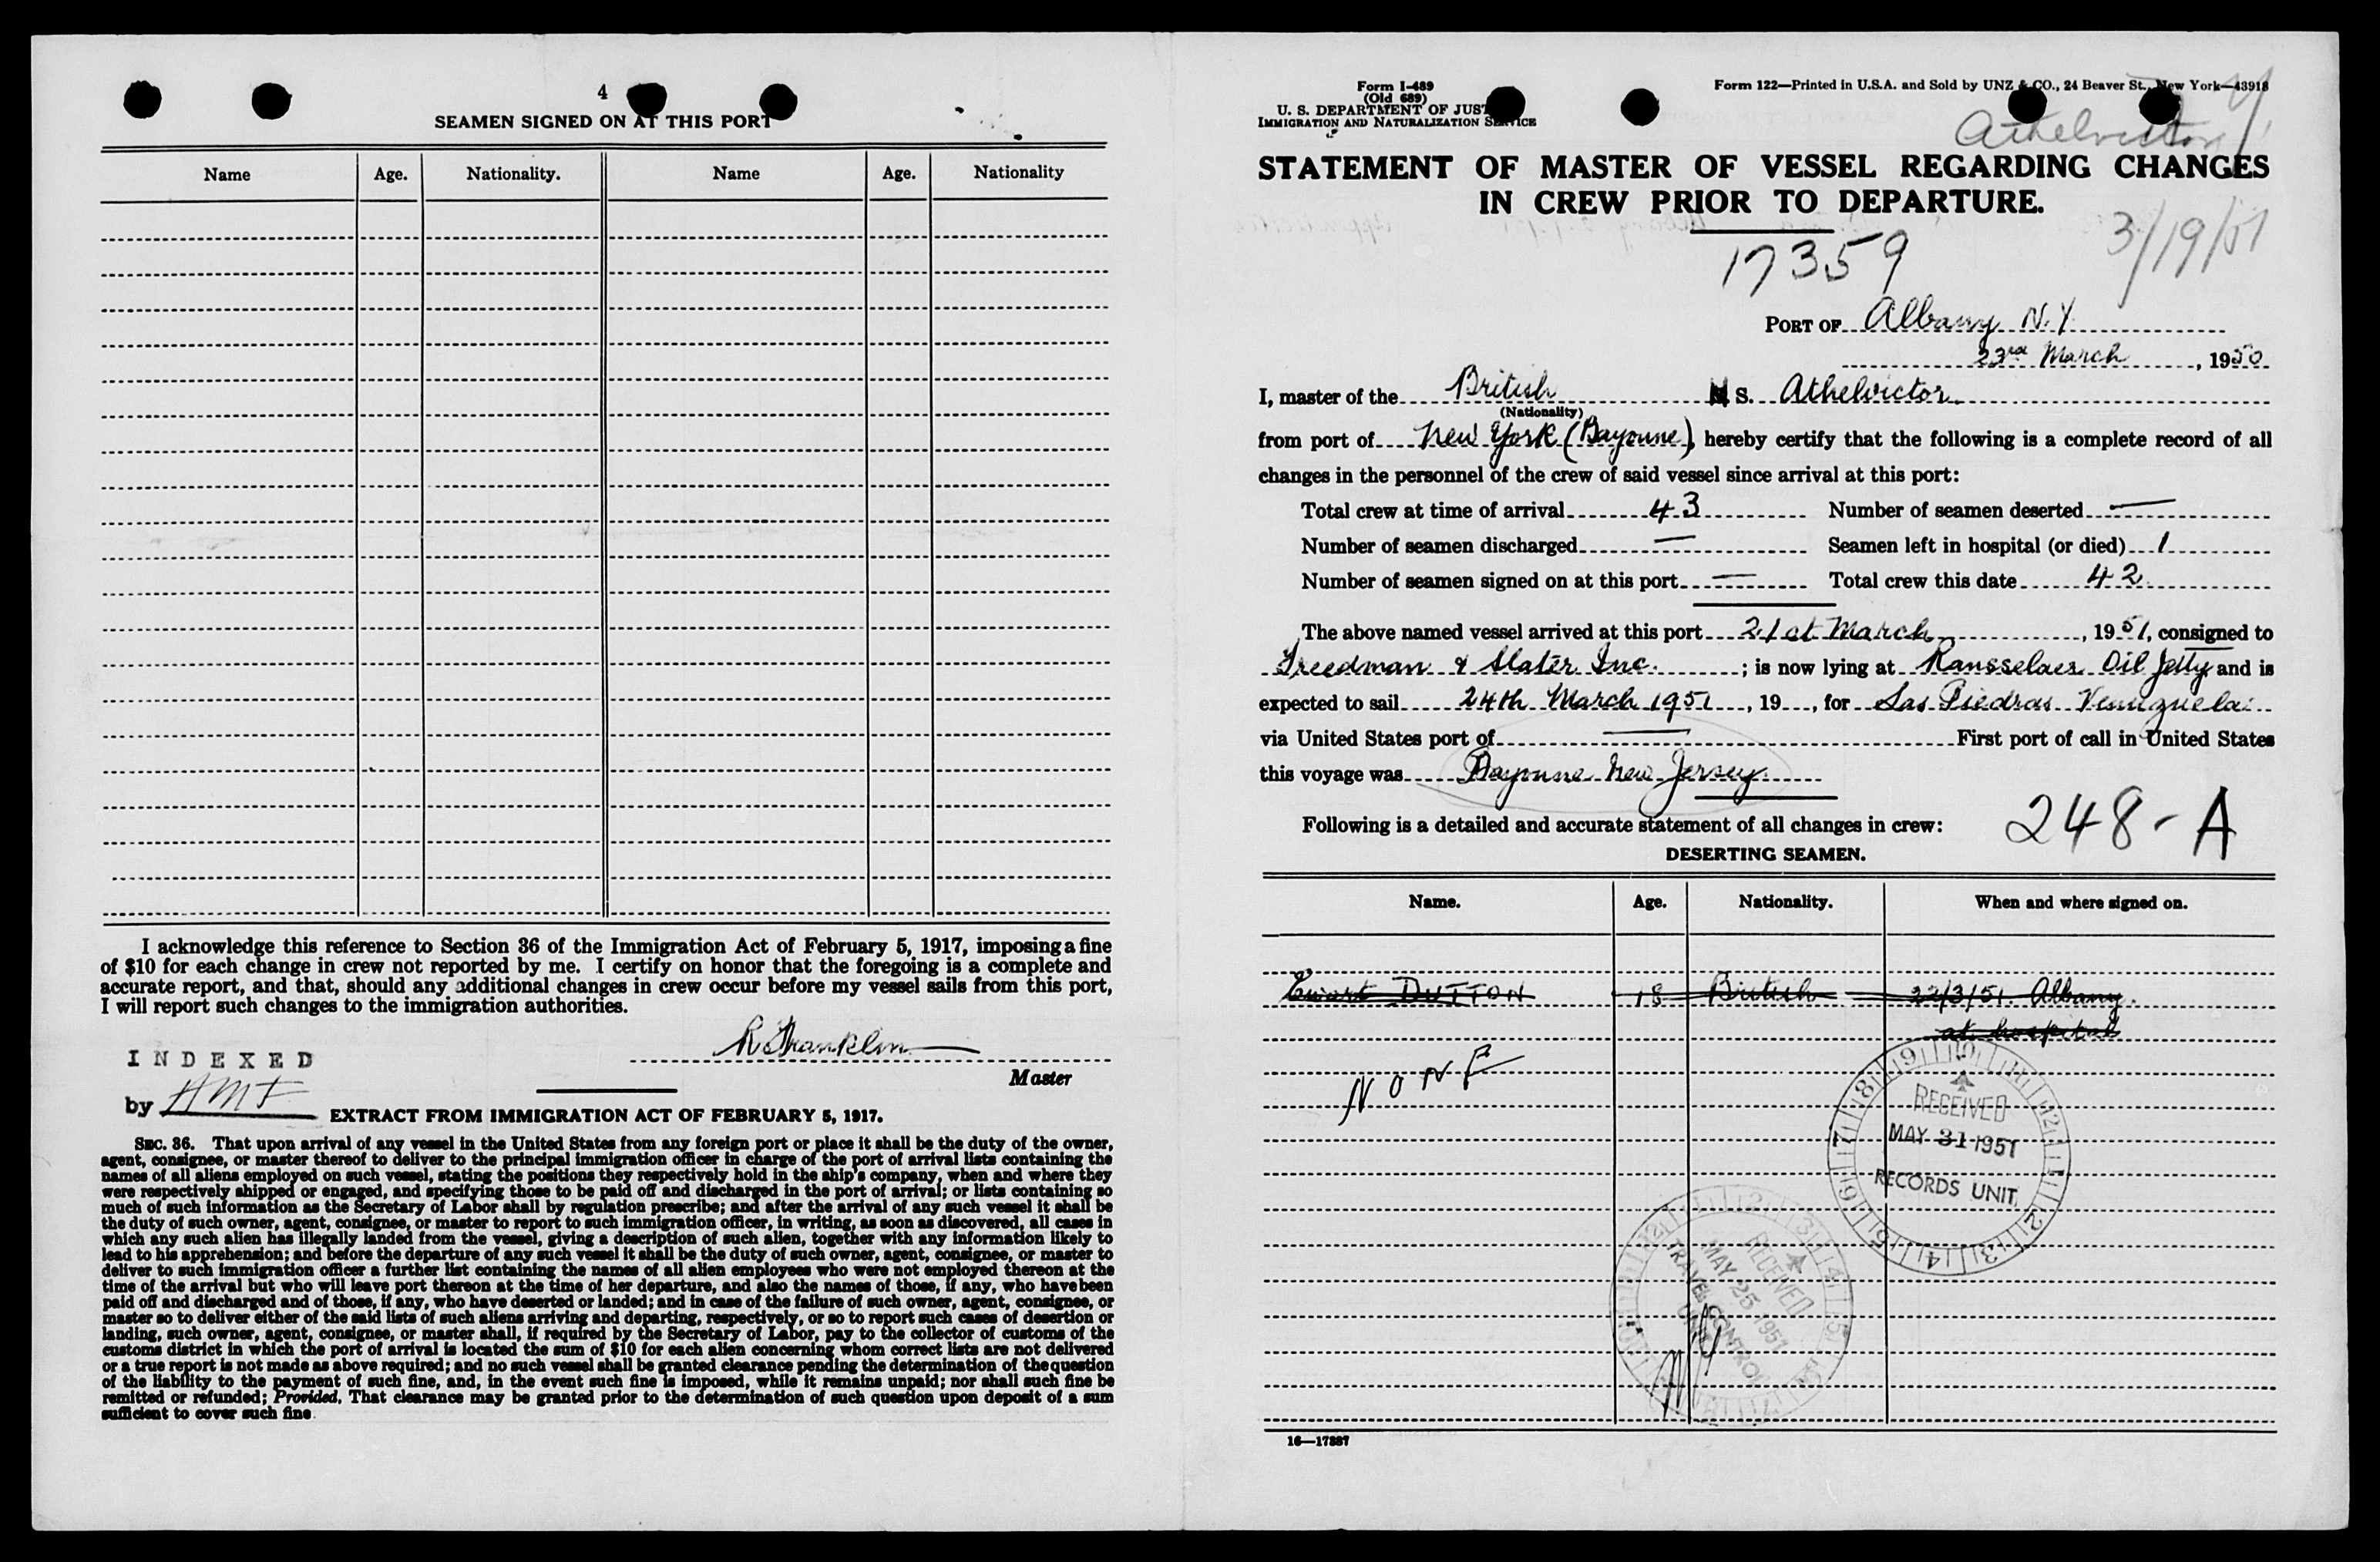 4
SEAMEN SIGNED ON AT THIS PORT
Name Age. Nationality. Name Age. Nationality
I acknowledge this reference to Section 36 of the Immigration Act of February 5, 1917, imposing a fine
of $10 for each change in crew not reported by me. I certify on honor that the foregoing is a complete and
accurate report, and that, should any additional changes in crew occur before my vessel sails from this port,
I will report such changes to the immigration authorities.
R Franklin
Master
INDEXED
by HMF
EXTRACT FROM IMMIGRATION ACT OF FEBRUARY 5, 1917.
SEC. 36. That upon arrival of any vessel in the United States from any foreign port or place it shall be the duty of the owner,
agent, consignee, or master thereof to deliver to the principal immigration officer in charge of the port of arrival lists containing the
names of all aliens employed on such vessel, stating the positions they respectively hold in the ship's company, when and where they
were respectively shipped or engaged, and specifying those to be paid off and discharged in the port of arrival; or lists containing so
much of such information as the Secretary of Labor shall by regulation prescribe; and after the arrival of any such vessel it shall be
the duty of such owner, agent, consignee, or master to report to such immigration officer, in writing, as soon as discovered, all cases in
which any such alien has illegally landed from the vessel, giving a description of such alien, together with any information likely to
lead to his apprehension; and before the departure of any such vessel it shall be the duty of such owner, agent, consignee, or master to
deliver to such immigration officer a further list containing the names of all alien employees who were not employed thereon at the
time of the arrival but who will leave port thereon at the time of her departure, and also the names of those, if any, who have been
paid off and discharged and of those, if any, who have deserted or landed; and in case of the failure of such owner, agent, consignee, or
master so to deliver either of the said lists of such aliens arriving and departing, respectively, or so to report such cases of desertion or
landing, such owner, agent, consignee, or master shall, if required by the Secretary of Labor, pay to the collector of customs of the
customs district in which the port of arrival is located the sum of $10 for each alien concerning whom correct lists are not delivered
or a true report is not made as above required; and no such vessel shall be granted clearance pending the determination of the question
of the liability to the payment of such fine, and, in the event such fine is imposed, while it remains unpaid; nor shall such fine be
remitted or refunded; Provided, That clearance may be granted prior to the determination of such question upon deposit of a sum
sufficient to cover such fine.
Form I-489
(Old 689)
U. S. DEPARTMENT OF JUSTICE
IMMIGRATION AND NATURALIZATION SERVICE
Form 122—Printed in U.S.A. and Sold by UNZ & CO., 24 Beaver St., New York—43918
Athelvictor
STATEMENT OF MASTER OF VESSEL REGARDING CHANGES
IN CREW PRIOR TO DEPARTURE.
17359
3/19/51
PORT OF Albany N.Y.
23rd March, 1950
I, master of the British M S. Athelvictor
(Nationality)
from port of New York (Bayonne), hereby certify that the following is a complete record of all
changes in the personnel of the crew of said vessel since arrival at this port:
Total crew at time of arrival 43 Number of seamen deserted —
Number of seamen discharged — Seamen left in hospital (or died) 1
Number of seamen signed on at this port — Total crew this date 42
The above named vessel arrived at this port 21st March, 1951, consigned to
Freedman & Slater Inc. ; is now lying at Ransselaer Oil Jetty and is
expected to sail 24th March 1951, 19 , for Las Piedras Venezuela
via United States port of — First port of call in United States
this voyage was Bayonne New Jersey.
Following is a detailed and accurate statement of all changes in crew:
248-A
DESERTING SEAMEN.
Name. Age. Nationality. When and where signed on.
Ewart DUTTON 18 British 22/3/51 Albany.
at hospital
NONE
RECEIVED
MAY 31 1951
RECORDS UNIT
RECEIVED
MAY 25 1951
TRAVEL CONTROL
UNIT
16—17887